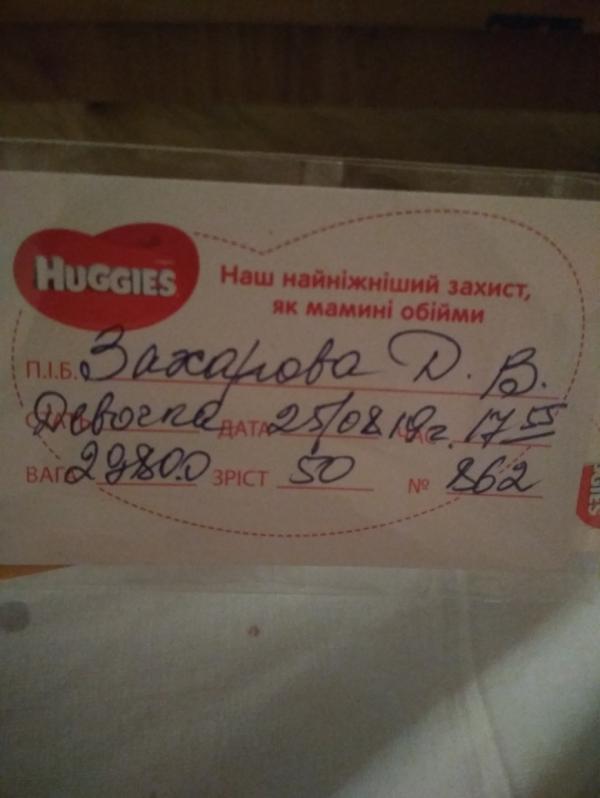 HUGGIES
Наш найніжніший захист,
як мамині обійми
П.І.Б. Захарова Д. В.
Девочка ДАТА 25/08 19г. 17 55
ВАГ 2980.0 ЗРІСТ 50 № 862
GIES